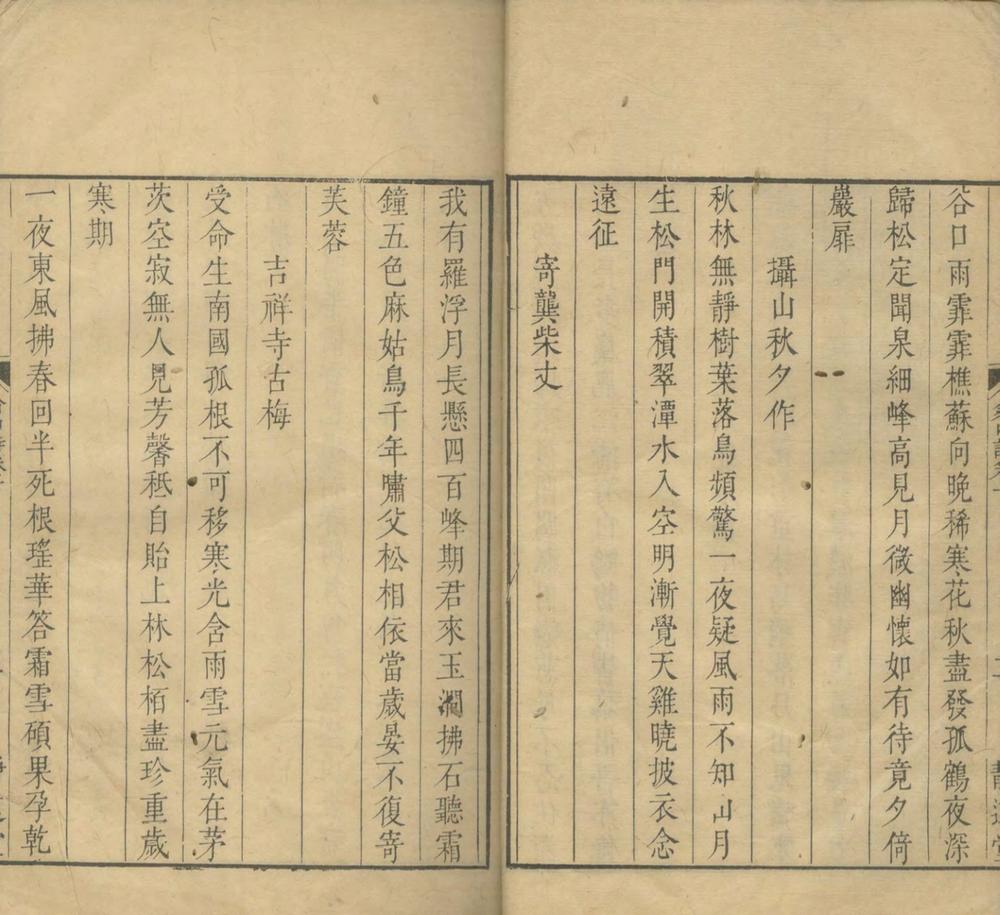 谷口雨霏霏樵蘇向晚稀寒花秋盡發孤鶴夜深
歸松定聞泉細峰高見月微幽懷如有待竟夕倚
巖扉
攝山秋夕作
秋林無靜樹葉落鳥頻驚一夜疑風雨不知山月
生松門開積翠潭水入空明漸覺天雞曉披衣念
遠征
寄龔柴丈
我有羅浮月長懸四百峰期君來玉㵎拂石聽霜
鐘五色麻姑鳥千年嘯父松相依當歲晏不復寄
芙蓉
吉祥寺古梅
受命生南國孤根不可移寒光含雨雪元氣在茅
茨空寂無人見芳馨秪自貽上林松栢盡珍重歲
寒期
一夜東風拂春回半死根瑤華答霜雪碩果孕乾